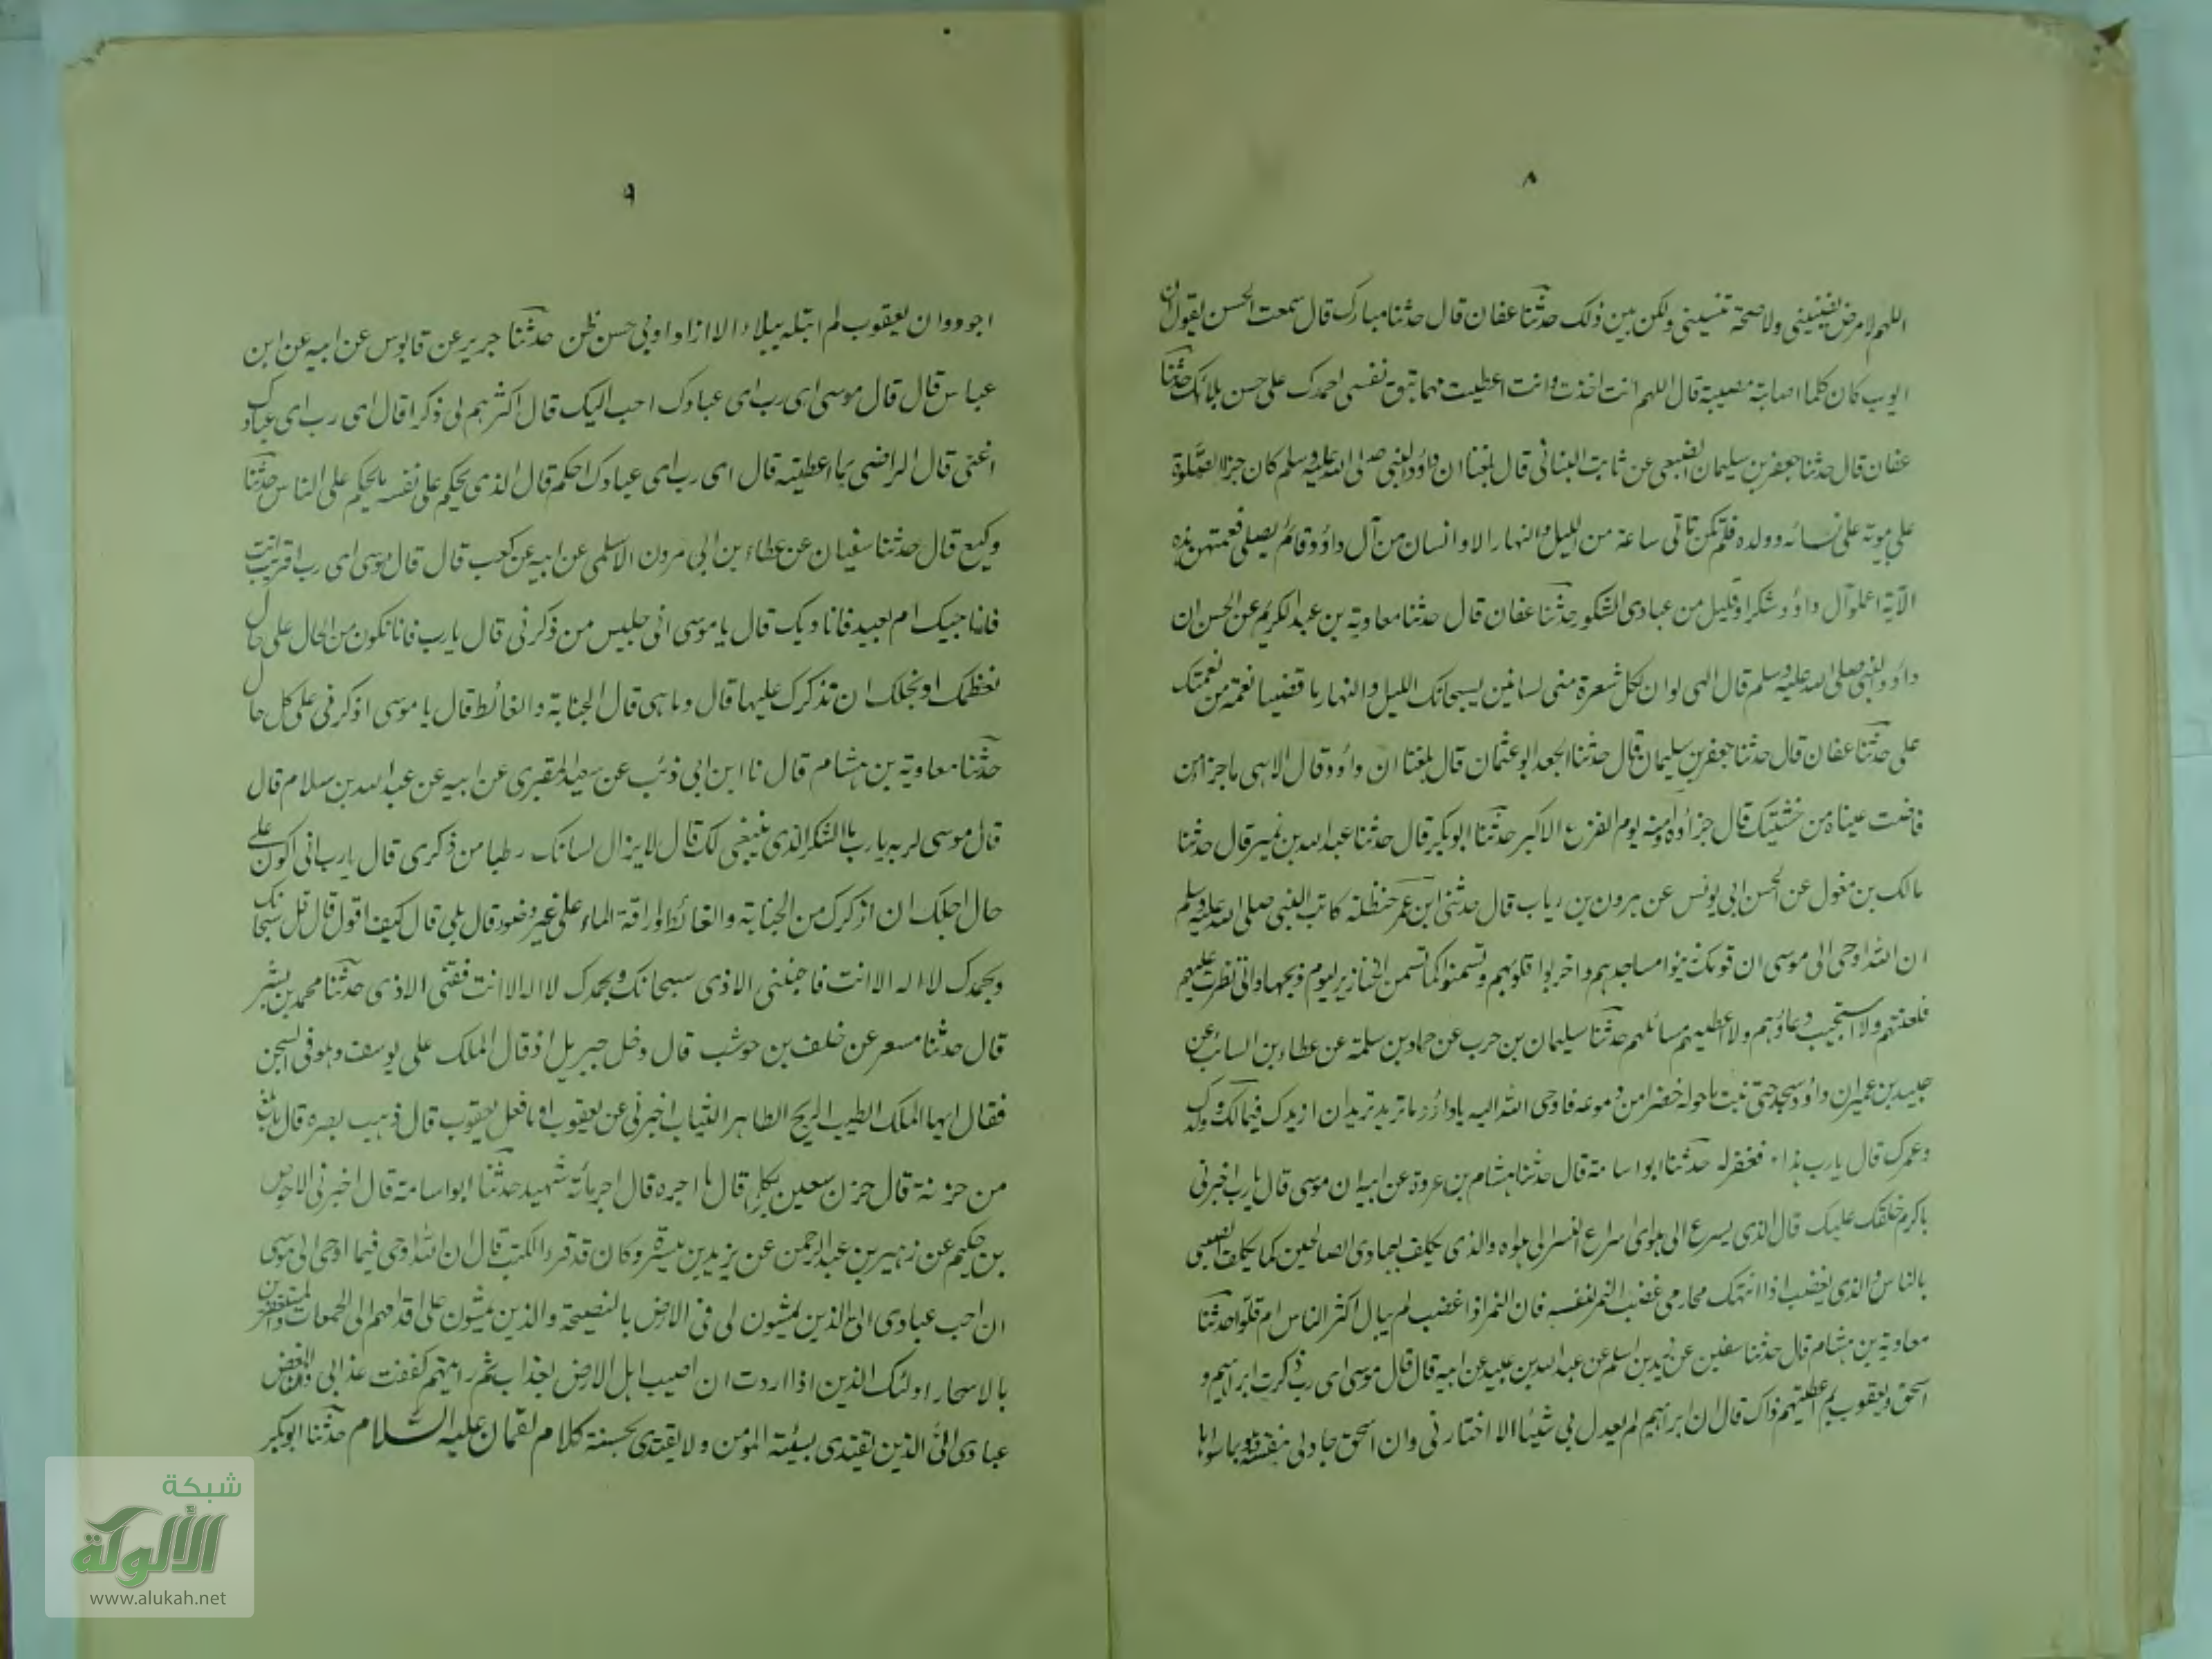 ٨
اللهم لا مرض يضنيني ولا صحة تنسيني ولكن بين ذلك حدثنا عفان قال حدثنا مبارك قال سمعت الحسن يقول ان
ايوب كان كلما اصابته مصيبة قال اللهم انت اخذت وانت اعطيت مهما تبق نفسي احمدك على حسن بلائك حدثنا
عفان قال حدثنا جعفر بن سليمان الضبعي عن ثابت البناني قال بلغنا ان داؤد النبي صلى الله عليه وسلم كان جزا الصلوة
على بيوته على نسائه وولده فلم تكن تاتي ساعة من الليل والنهار الا وانسان من آل داؤد قائم يصلي فعمتهن هذه
الآية اعملوا آل داؤد شكرا وقليل من عبادي الشكور حدثنا عفان قال حدثنا معاوية بن عبد الكريم عن الحسن ان
داؤد النبي صلى الله عليه وسلم قال الهي لو ان لكل شعرة مني لسانين يسبحانك الليل والنهار ما قضينا نعمة من نعمتك
علي حدثنا عفان قال حدثنا جعفر بن سليمان قال حدثنا الجعد ابو عثمان قال بلغنا ان داؤد قال الاهي ما جزا من
فاضت عيناه من خشيتك قال جزاؤه ان اؤمنه يوم الفزع الاكبر حدثنا ابو بكر قال حدثنا عبد الله بن نمير قال حدثنا
مالك بن مغول عن الحسن ابي يونس عن هرون بن رياب قال حدثني ابن عم حنظلة كاتب النبي صلى الله عليه وسلم
ان الله اوحى الى موسى ان قومك زينوا مساجدهم واخربوا قلوبهم وتسمنوا كما تسمن الخنازير ليوم ذبحها واني نظرت اليهم
فلعنتهم ولا استجيب دعاؤهم ولا اعطيهم مسائلهم حدثنا سليمان بن حرب عن حماد بن سلمة عن عطاء بن السائب عن
عبيد بن عمير ان داؤد سجد حتى نبت ما حوله خضرا من دموعه فاوحى الله اليه يا داؤد ما تريد تريد ان ازيدك في مالك وولدك
وعمرك قال يارب هذا فغفر له حدثنا ابو اسامة قال حدثنا هشام بن عروة عن ابيه ان موسى قال يا رب اخبرني
باكرم خلقك عليك قال الذي يسرع الى هواي اسراع النسر الى هواه والذي يكلف بعبادي الصالحين كما يكلف الصبي
بالناس والذي يغضب اذا انتهك محارمي غضب النمر لنفسه فان النمر اذا غضب لم يبال اكثر الناس ام قلوا حدثنا
معاوية بن هشام قال حدثنا سفين عن زيد بن اسلم عن عبد الله بن عبيد عن ابيه قال قال موسى اي رب ذكرت ابراهيم و
اسحق ويعقوب بم اعطيتهم ذاك قال ان ابراهيم لم يعدل بي شيئا الا اختارني وان اسحق جاد لي بنفسه وهو بما سواها
٩
اجود وان يعقوب لم ابتله ببلاء الا ازداد بي حسن ظن حدثنا جرير عن قابوس عن ابيه عن ابن
عباس قال قال موسى اي رب اي عبادك احب اليك قال اكثرهم لي ذكرا قال اي رب اي عبادك
اغنى قال الراضي بما اعطيته قال اي رب اي عبادك احكم قال الذي يحكم على نفسه بما يحكم على الناس حدثنا
وكيع قال حدثنا سفيان عن عطاء بن ابي مرون الاسلمي عن ابيه عن كعب قال قال موسى اي رب اقريب انت
فاناجيك ام بعيد فاناديك قال يا موسى اني جليس من ذكرني قال يارب فانا نكون من الحال على حال
نعظمك او نجلك ان نذكرك عليها قال وما هي قال الجنابة والغائط قال يا موسى اذكرني على كل حال
حدثنا معاوية بن هشام قال نا ابن ابي ذئب عن سعيد المقبري عن ابيه عن عبد الله بن سلام قال
قال موسى لربه يا رب ما الشكر الذي ينبغي لك قال لا يزال لسانك رطبا من ذكري قال يارب اني اكون على
حال اجلك ان اذكرك من الجنابة والغائط واراقة الماء وعلى غير وضوء قال بلى قال كيف اقول قال قل سبحانك
وبحمدك لا اله الا انت فاجنبني الاذى سبحانك وبحمدك لا اله الا انت فقني الاذى حدثنا محمد بن بشر
قال حدثنا مسعر عن خلف بن حوشب قال دخل جبريل اذ قال الملك على يوسف وهو في السجن
فقال ايها الملك الطيب الريح الطاهر الثياب اخبرني عن يعقوب او ما فعل يعقوب قال ذهب بصره قال ما بلغ
من حزنه قال حزن سبعين ثكلى قال ما اجره قال اجر مائة شهيد حدثنا ابو اسامة قال اخبرني الاحوص
بن حكيم عن زهير بن عبد الرحمن عن يزيد بن ميسرة وكان قد قرء الكتب قال ان الله اوحى فيما اوحى الى موسى
ان احب عبادي الي الذين يمشون لي في الارض بالنصيحة والذين يمشون على اقدامهم الى الجمعات والمستغفرين
بالاسحار اولئك الذين اذا اردت ان اصيب اهل الارض بعذاب ثم رايتهم كففت عذابي وان ابغض
عبادي الي الذين يقتدي بسيئة المومن ولا يقتدي بحسنة كلام لقمان عليه السلام حدثنا ابو بكر
شبكة
الألوكة
www.alukah.net